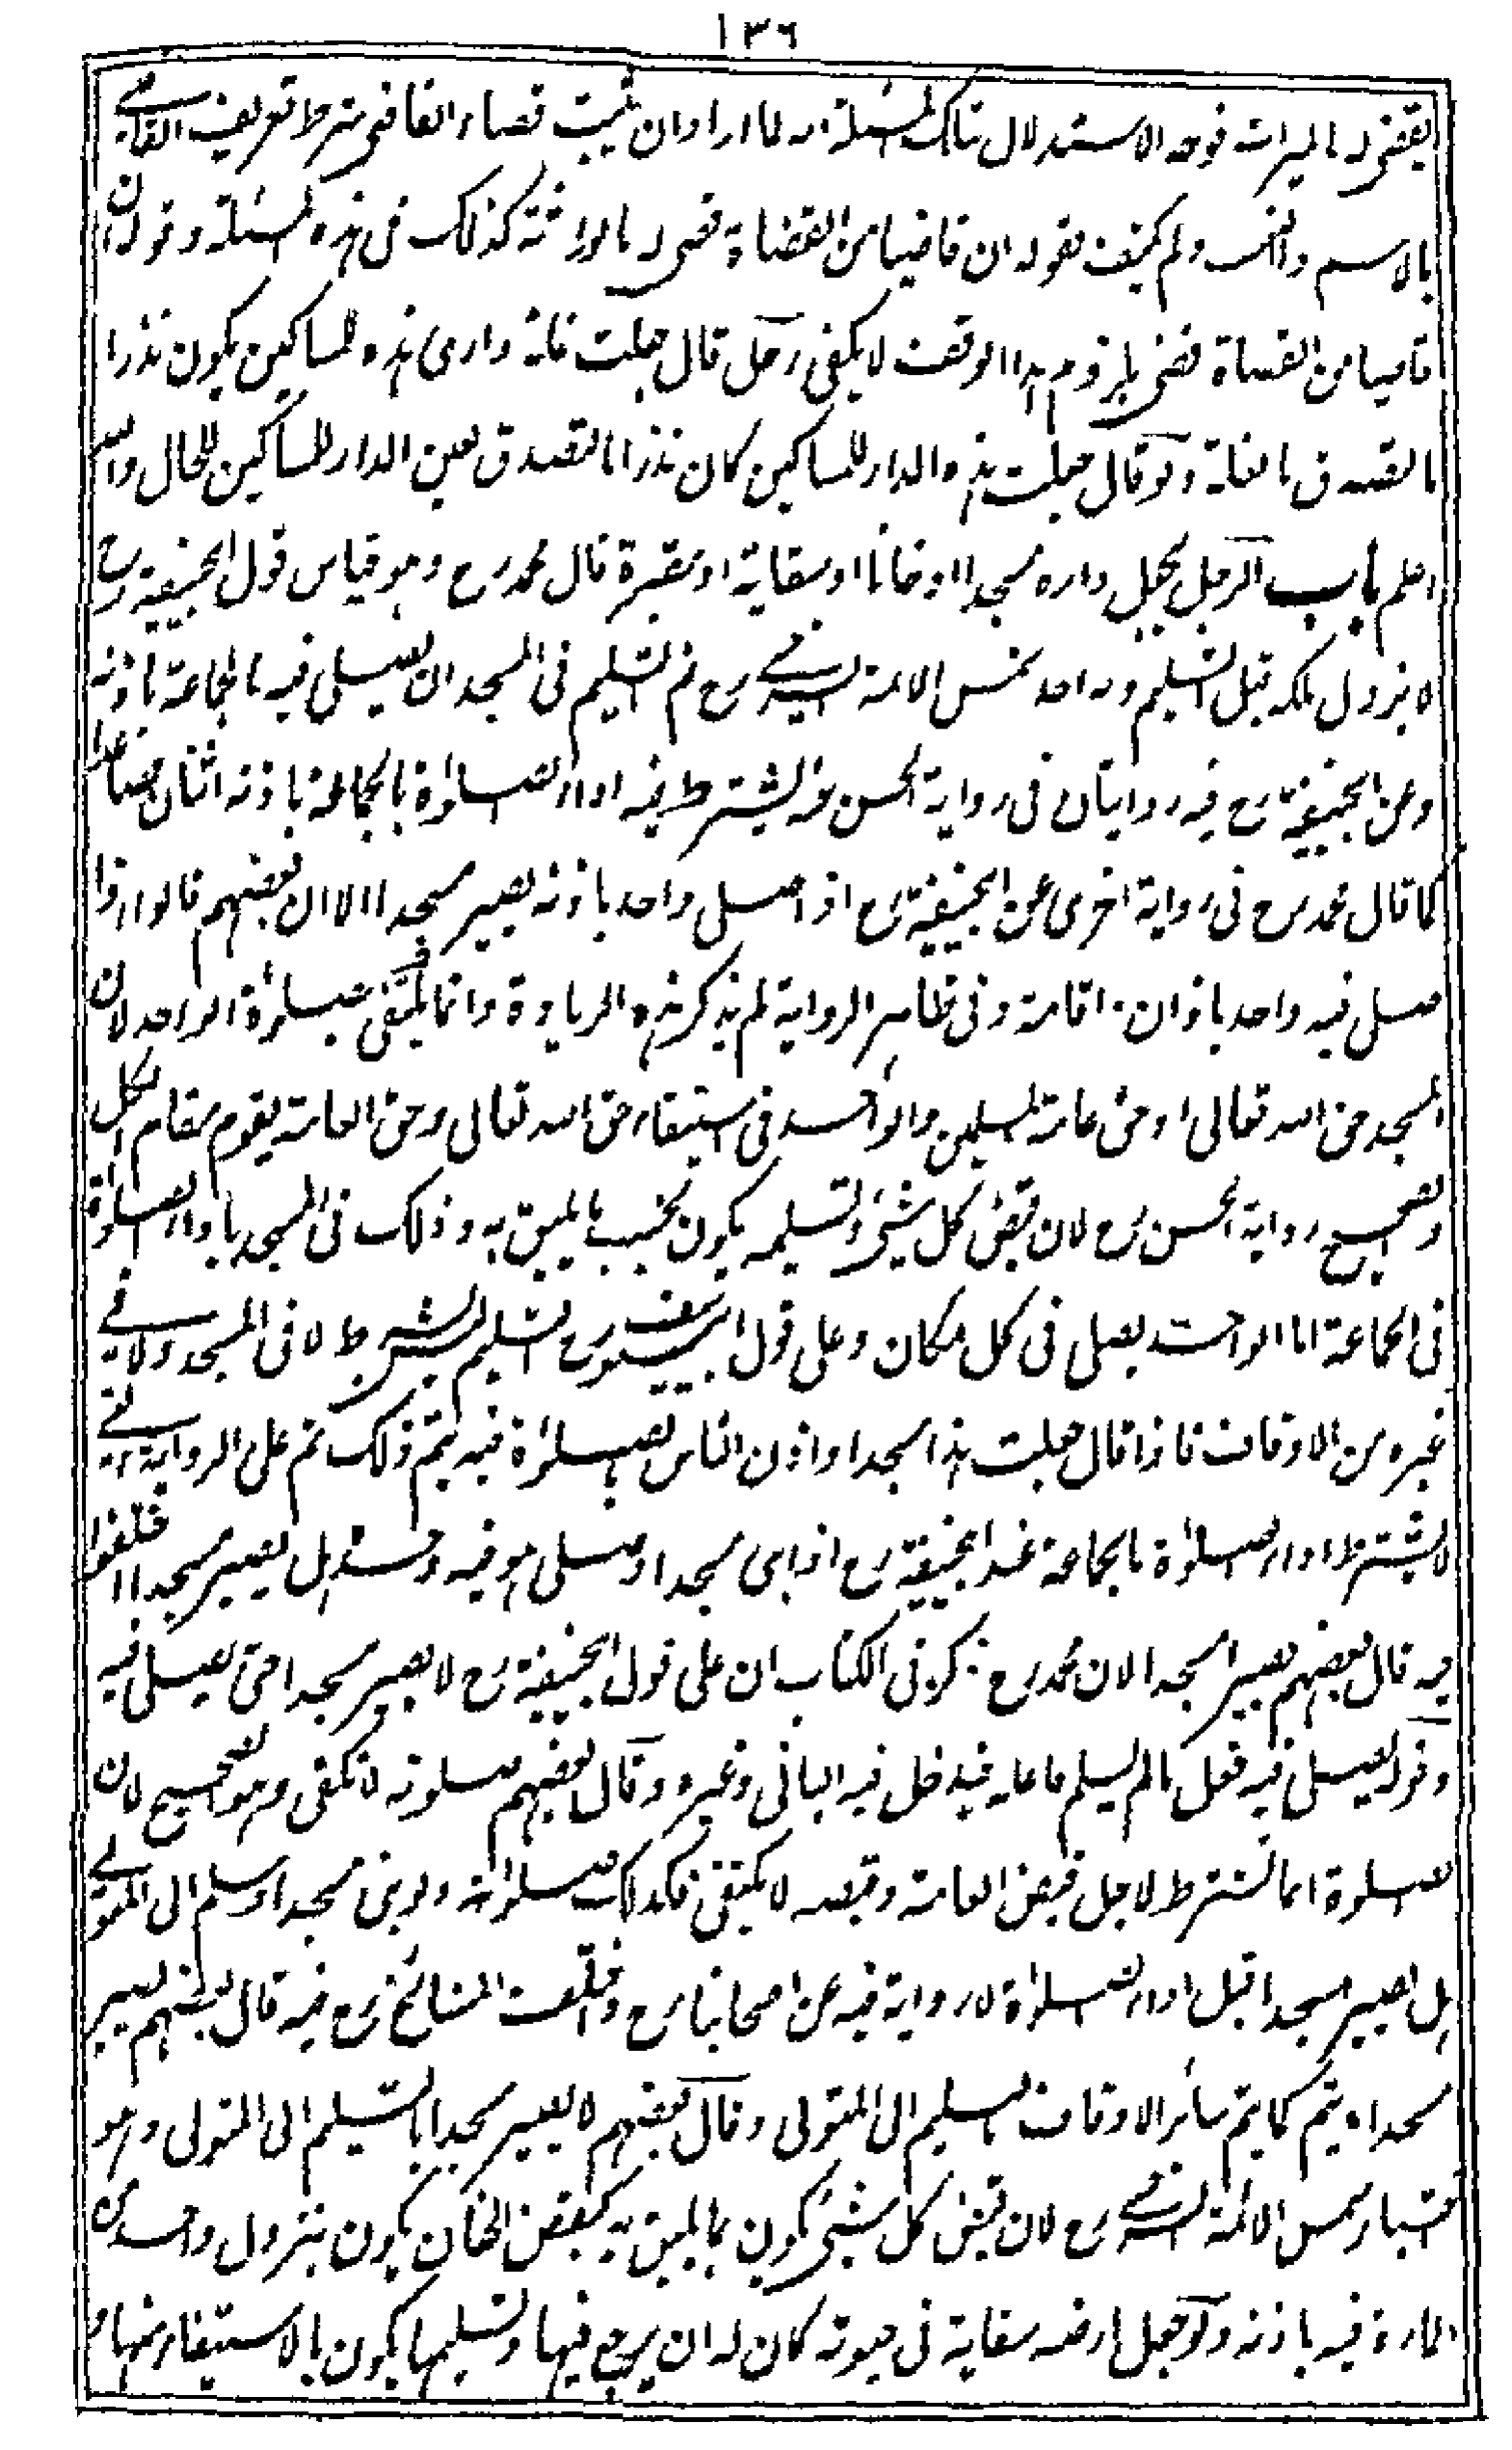 ١٣٦
يقضى له بالميراث فوجه الاستدلال بتلك المسئلة انه لما اراد ان يثبت قضاء القاضى شرط تعريف القاضى
بالاسم والنسب ولم يكتف بقوله ان قاضيا من القضاة قضى له بالوراثة كذلك فى هذه المسئلة وقوله ان
قاضيا من القضاة قضى بلزوم هذا الوقف لا يكفى رجل قال جعلت غلة دارى هذه للمساكين يكون نذرا
بالتصدق بالغلة ولو قال جعلت هذه الدار للمساكين كان نذرا بالتصدق بعين الدار للمساكين للحال والله
اعلم باب الرجل يجعل داره مسجدا او خانا او سقاية او مقبرة قال محمد رح وهو قياس قول ابيحنيفة رح
لا يزول ملكه قبل التسليم وبه اخذ شمس الائمة السرخسى رح ثم التسليم فى المسجد ان يصلى فيه بالجماعة باذنه
وعن ابيحنيفة رح فيه روايتان فى رواية الحسن عنه يشترط فيه اداء الصلوٰة بالجماعة باذنه اثنان فصاعدا
كما قال محمد رح فى رواية اخرى عن ابيحنيفة رح اذا صلى واحد باذنه يصير مسجدا الا ان بعضهم قالوا اذا
صلى فيه واحد باذان واقامة وفى ظاهر الرواية لم يذكر هذه الزيادة وانما يكتفى بصلوٰة الواحد لان
المسجد حق الله تعالى او حق عامة المسلمين والواحد فى استيفاء حق الله تعالى وحق العامة يقوم مقام الكل
والصحيح رواية الحسن رح لان قبض كل شئ وتسليمه يكون بحسب ما يليق به وذلك فى المسجد باداء الصلوٰة
فى الجماعة اما الواحد يصلى فى كل مكان وعلى قول ابييوسف رح التسليم ليس بشرط لا فى المسجد ولا فى
غيره من الاوقاف فاذا قال جعلت هذا مسجدا واذن الناس بالصلوٰة فيه يتم ذلك ثم على الرواية التى
لا يشترط اداء الصلوٰة بالجماعة عند ابيحنيفة رح اذا بنى مسجدا وصلى هو فيه وحده هل يصير مسجدا اختلفوا
فيه قال بعضهم يصير مسجدا لان محمد رح ذكر فى الكتاب ان على قول ابيحنيفة رح لا يصير مسجدا حتى يصلى فيه
وقوله يصلى فيه فعل ما لم يسم فاعله فيدخل فيه البانى وغيره وقال بعضهم صلوته لا تكفى وهو الصحيح لان
الصلوة انما تشترط لاجل قبض العامة وقبضه لا يكتفى فكذلك صلوٰته ولو بنى مسجدا وسلم الى المتولى
هل يصير مسجدا قبل اداء الصلوٰة لا رواية فيه عن اصحابنا رح واختلف المشائخ رح فيه قال بعضهم يصير
مسجدا ويتم كما يتم سائر الاوقاف بالتسليم الى المتولى وقال بعضهم لا يصير مسجدا بالتسليم الى المتولى وهو
اختيار شمس الائمة السرخسى رح لان قبض كل شئ يكون بما يليق به كقبض الخان يكون بنزول واحد من
المارة فيه باذنه ولو جعل ارضه سقاية فى حيوته كان له ان يرجع فيها وتسليمها يكون بالاستيفاء منها